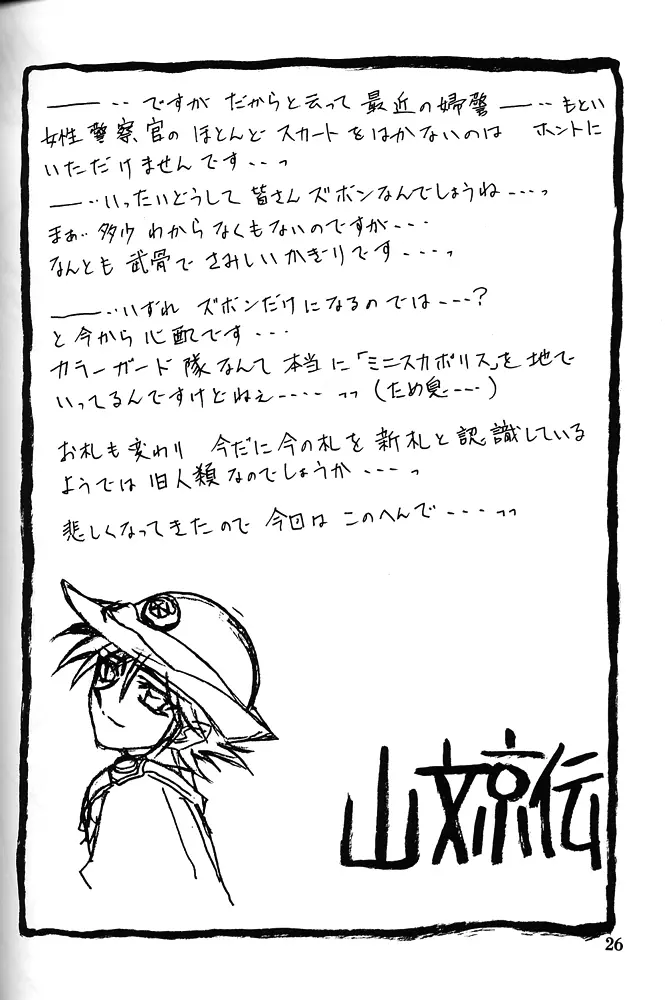 ――‥ ですが だからと云って 最近の婦警 ――‥ もとい
女性警察官の ほとんど スカートをはかないのは ホントに
いただけませんです‥‥っ
――‥いったいどうして 皆さん ズボンなんでしょうね‥‥っ
まぁ‥ 多少 わからなくもないのですが‥‥
なんとも 武骨で さみしいかぎりです‥‥っ
――‥いずれ ズボンだけになるのでは‥‥?
と今から 心配です‥‥
カラーガード 隊なんて 本当に「ミニスカポリス」を地で
いってるんですけどねぇ‥‥‥っっ (ため息‥‥)
お札も変わり 今だに今の札を 新札と認識している
ようでは 旧人類なのでしょうか‥‥っ
悲しくなってきたので 今回は このへんで‥‥っっ
山文京伝
26